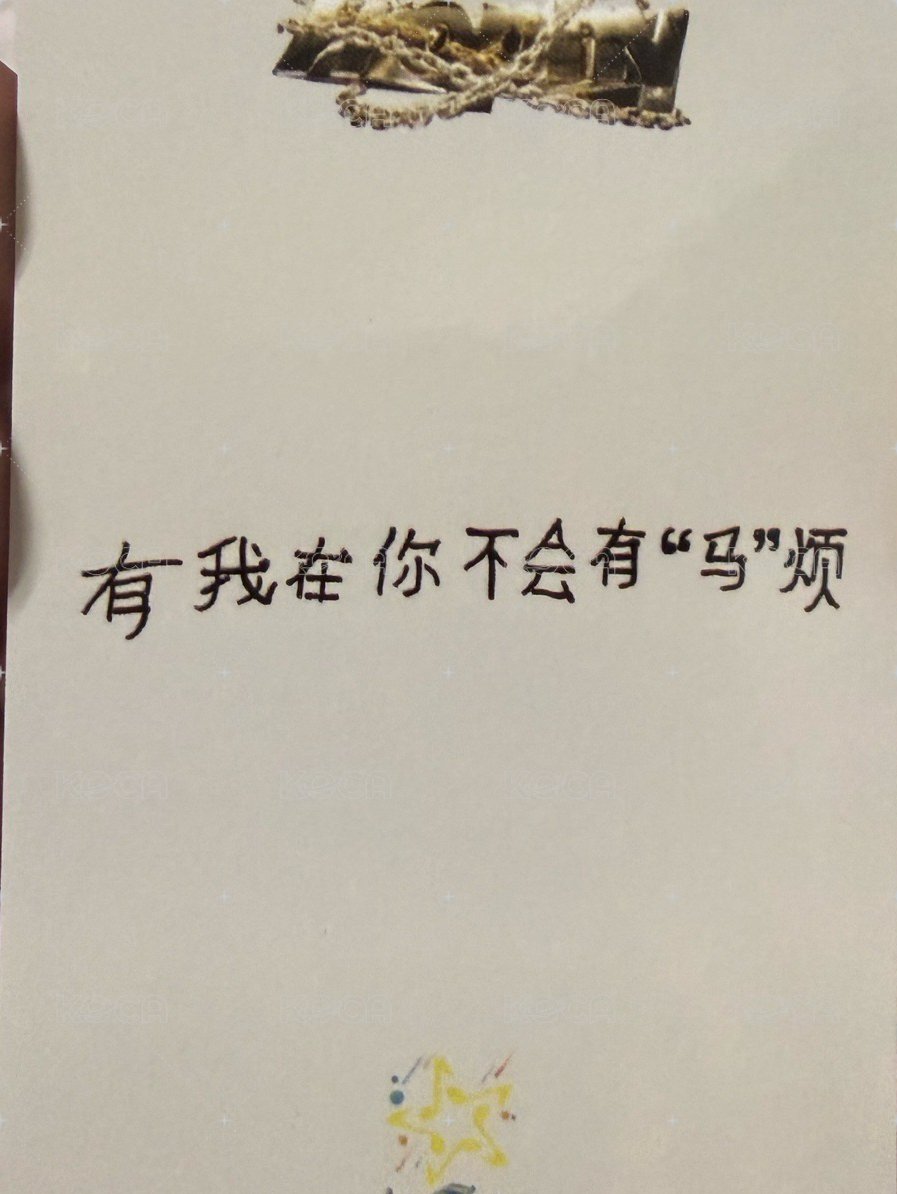 有我在你不会有“马”烦